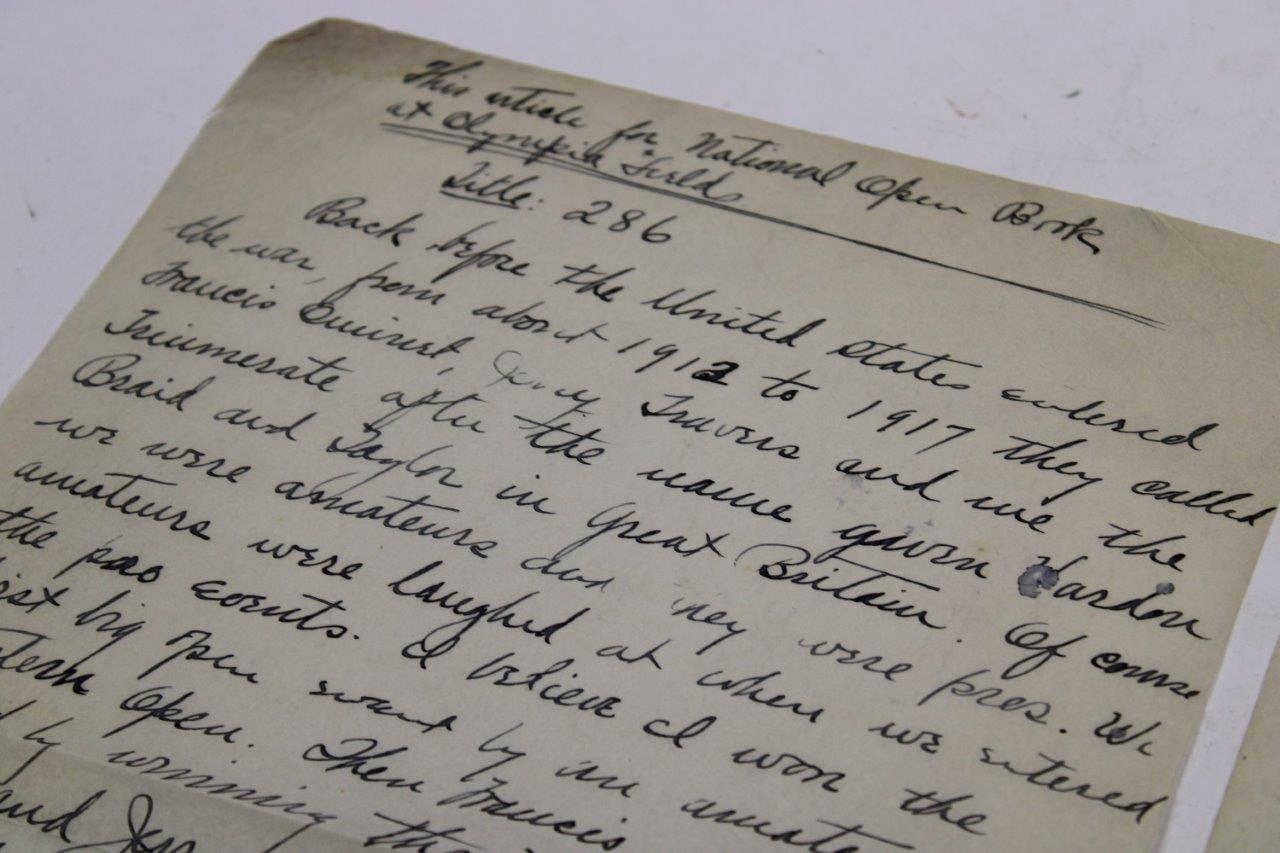 This article for National Open Book
at Olympia Fields
Title: 286
Back before the United States entered
the war, from about 1912 to 1917 they called
Francis Ouimet, Jerry Travers and me the
Triumerate after the name given Vardon
Braid and Taylor in Great Britain. Of course
we were amateurs and they were pros. We
amateurs were laughed at when we entered
the pro events. I believe I won the
big open event by an
Open. Then Francis
by winning the
and